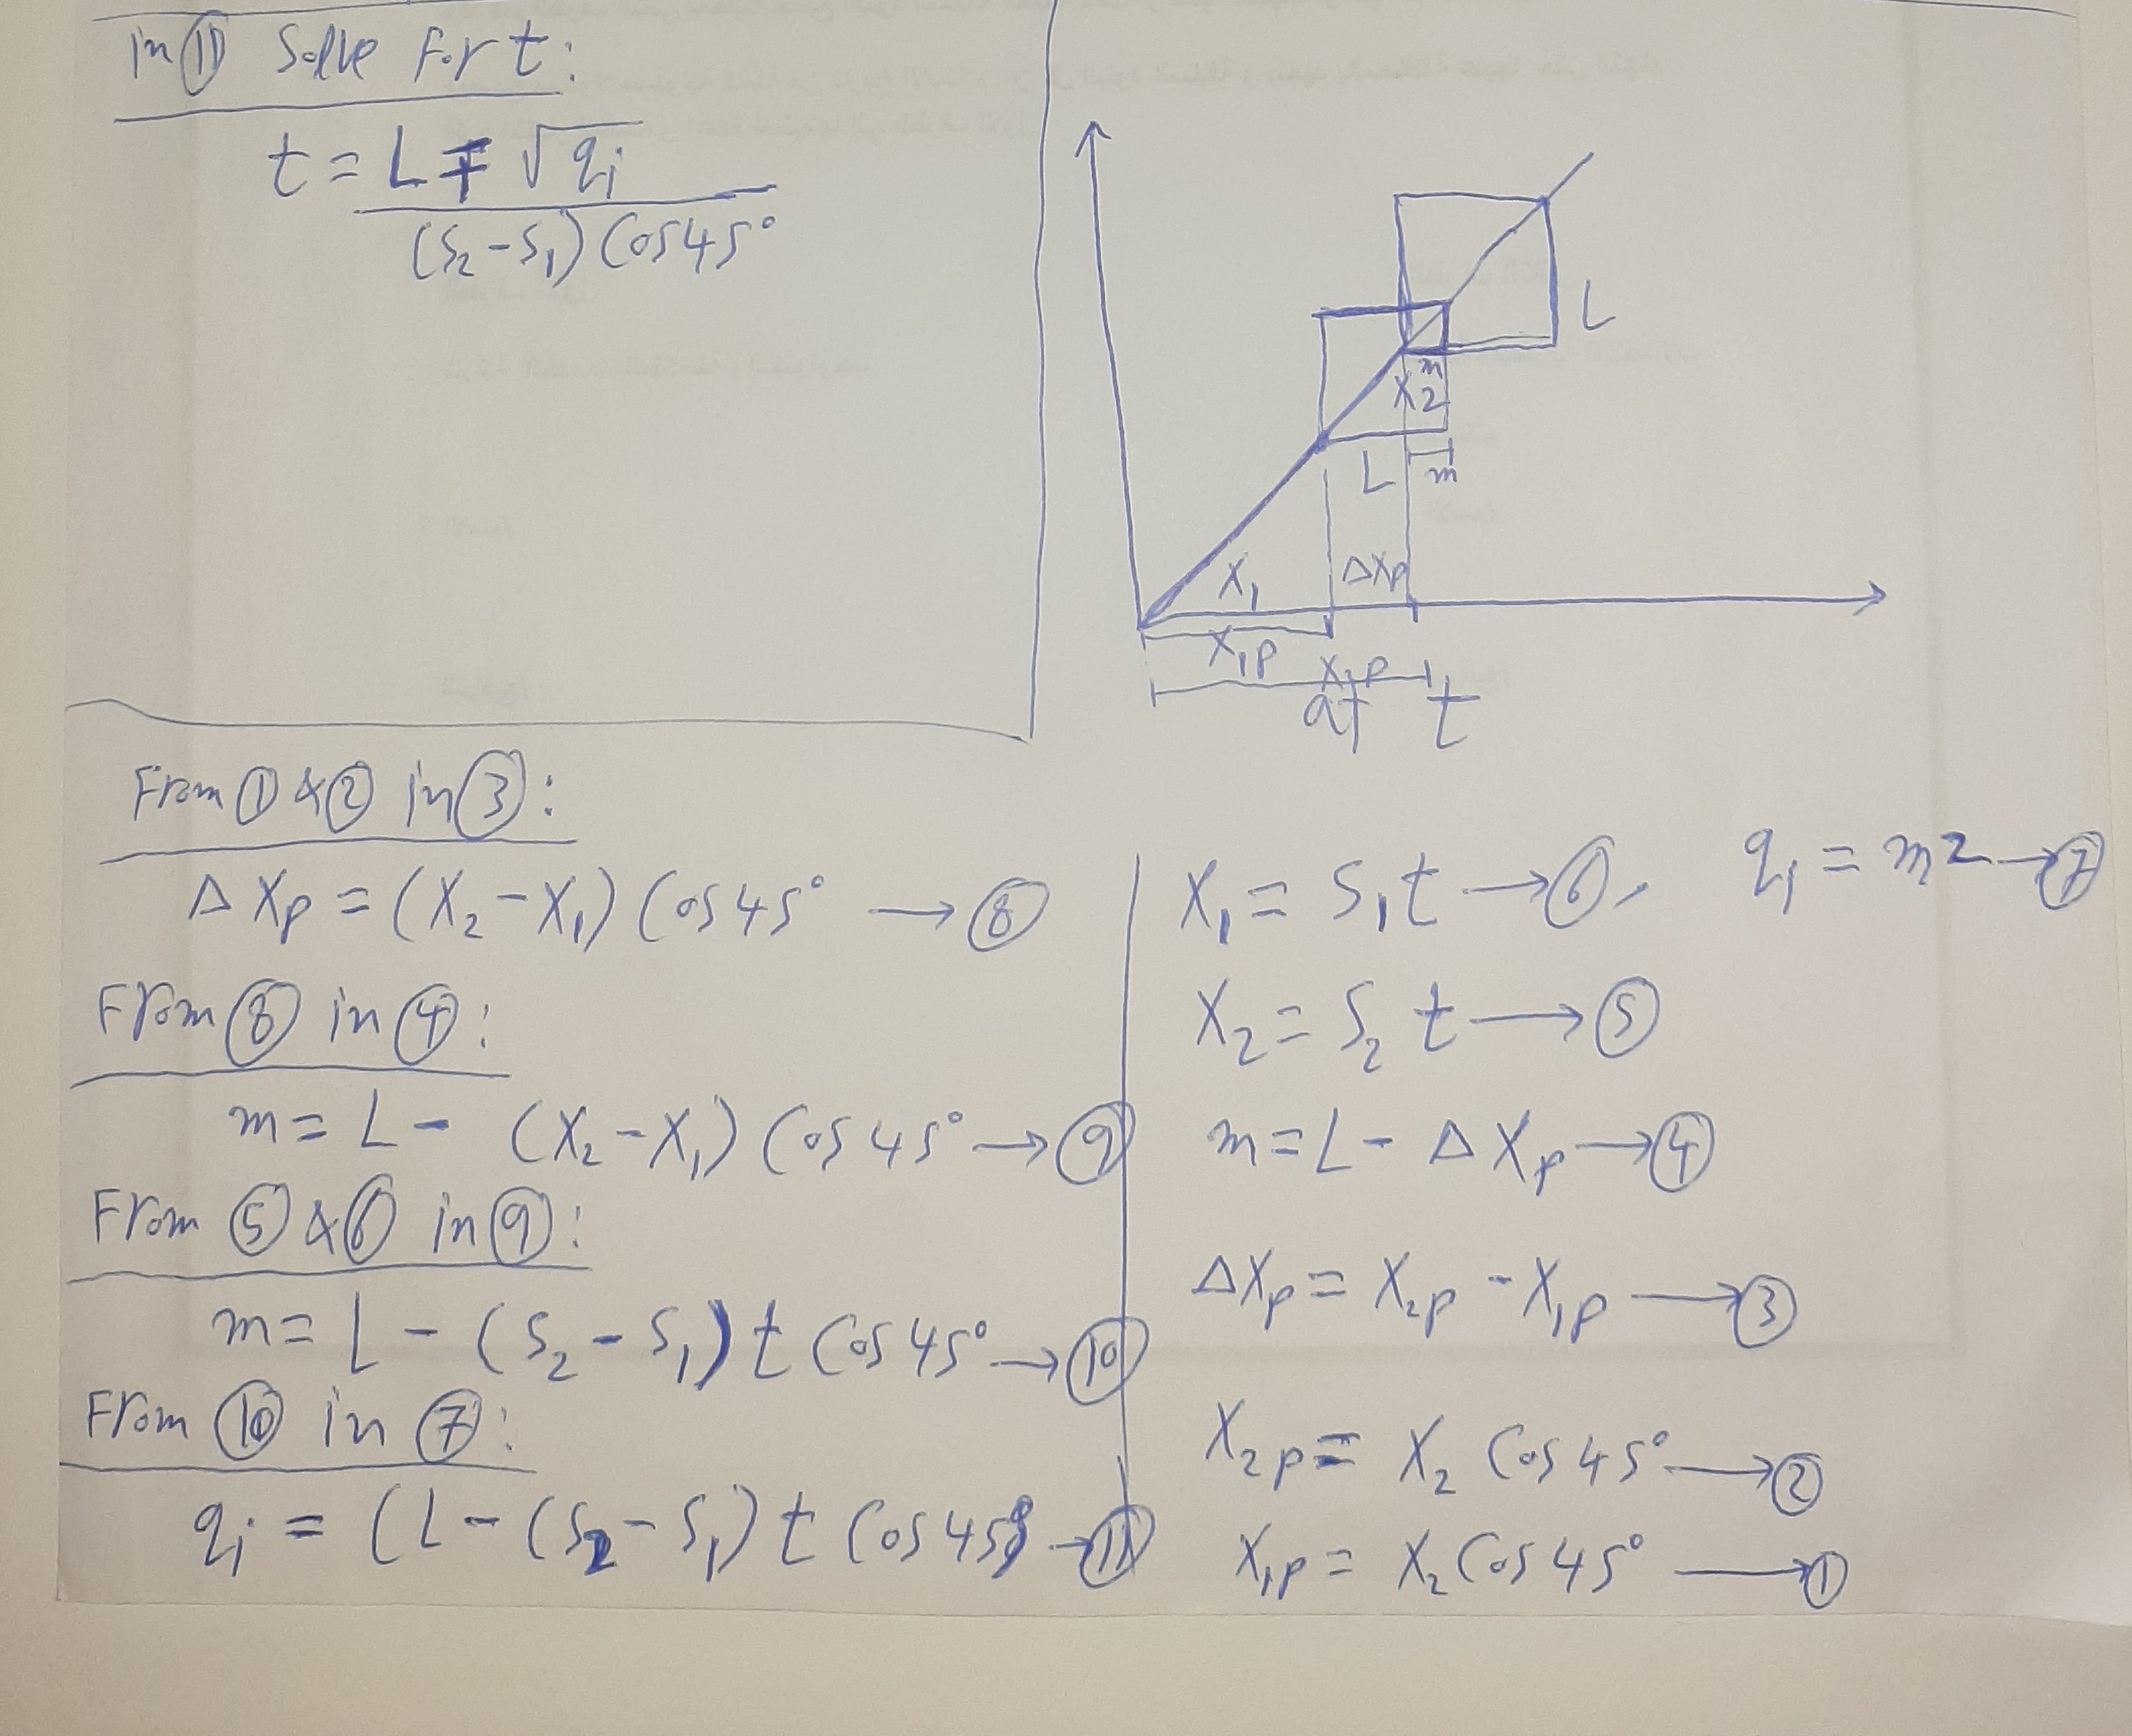 in ⑪ Solve For t:
t = L ∓ √qi
(S₂-S₁) Cos45°
L
m
X₂
L
m
X₁
ΔXp
X₁p
X₂p
at t
From ① & ② in ③:
ΔXp = (X₂-X₁) Cos45° → ⑧
From ⑧ in ④:
m = L - (X₂-X₁) Cos45° → ⑨
From ⑤ & ⑥ in ⑨:
m = L - (S₂-S₁) t Cos45° → ⑩
From ⑩ in ⑦:
qi = (L-(S₂-S₁) t Cos45°) → ⑪
X₁ = S₁t → ⑥, qi = m² → ⑦
X₂ = S₂ t → ⑤
m = L - ΔXp → ④
ΔXp = X₂p - X₁p → ③
X₂p = X₂ Cos45° → ②
X₁p = X₂ Cos45° → ①